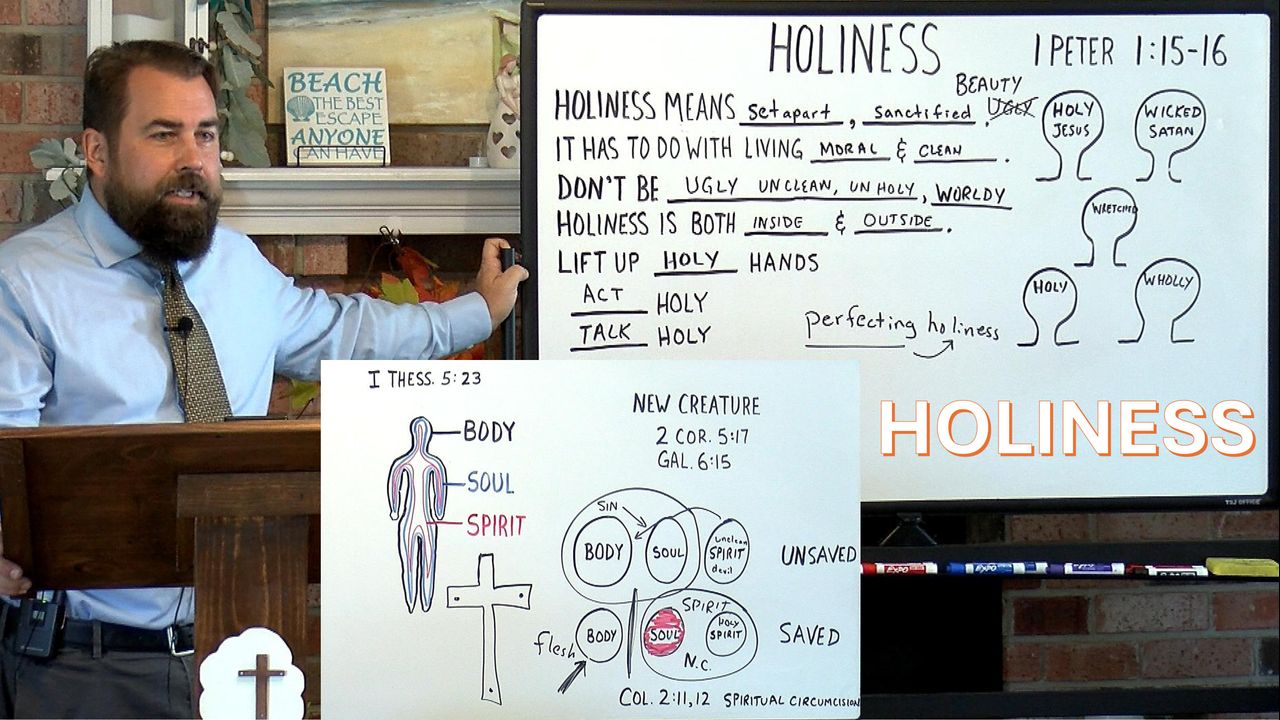 BEACH
THE BEST
ESCAPE
ANYONE
CAN HAVE
HOLINESS
I PETER 1:15-16
BEAUTY
HOLINESS MEANS set apart, sanctified. UGLY
IT HAS TO DO WITH LIVING MORAL & CLEAN.
DON'T BE UGLY UNCLEAN, UNHOLY, WORLDY
HOLINESS IS BOTH INSIDE & OUTSIDE.
LIFT UP HOLY HANDS
ACT HOLY
TALK HOLY
perfecting holiness
HOLY
JESUS
WICKED
SATAN
WRETCHED
HOLY
WHOLLY
HOLINESS
TSJ OFFICE
I THESS. 5:23
BODY
SOUL
SPIRIT
NEW CREATURE
2 COR. 5:17
GAL. 6:15
SIN
BODY
SOUL
unclean
SPIRIT
devil
UNSAVED
flesh
BODY
SPIRIT
SOUL
HOLY
SPIRIT
N.C.
SAVED
COL. 2:11,12 SPIRITUAL CIRCUMCISION
EXPO